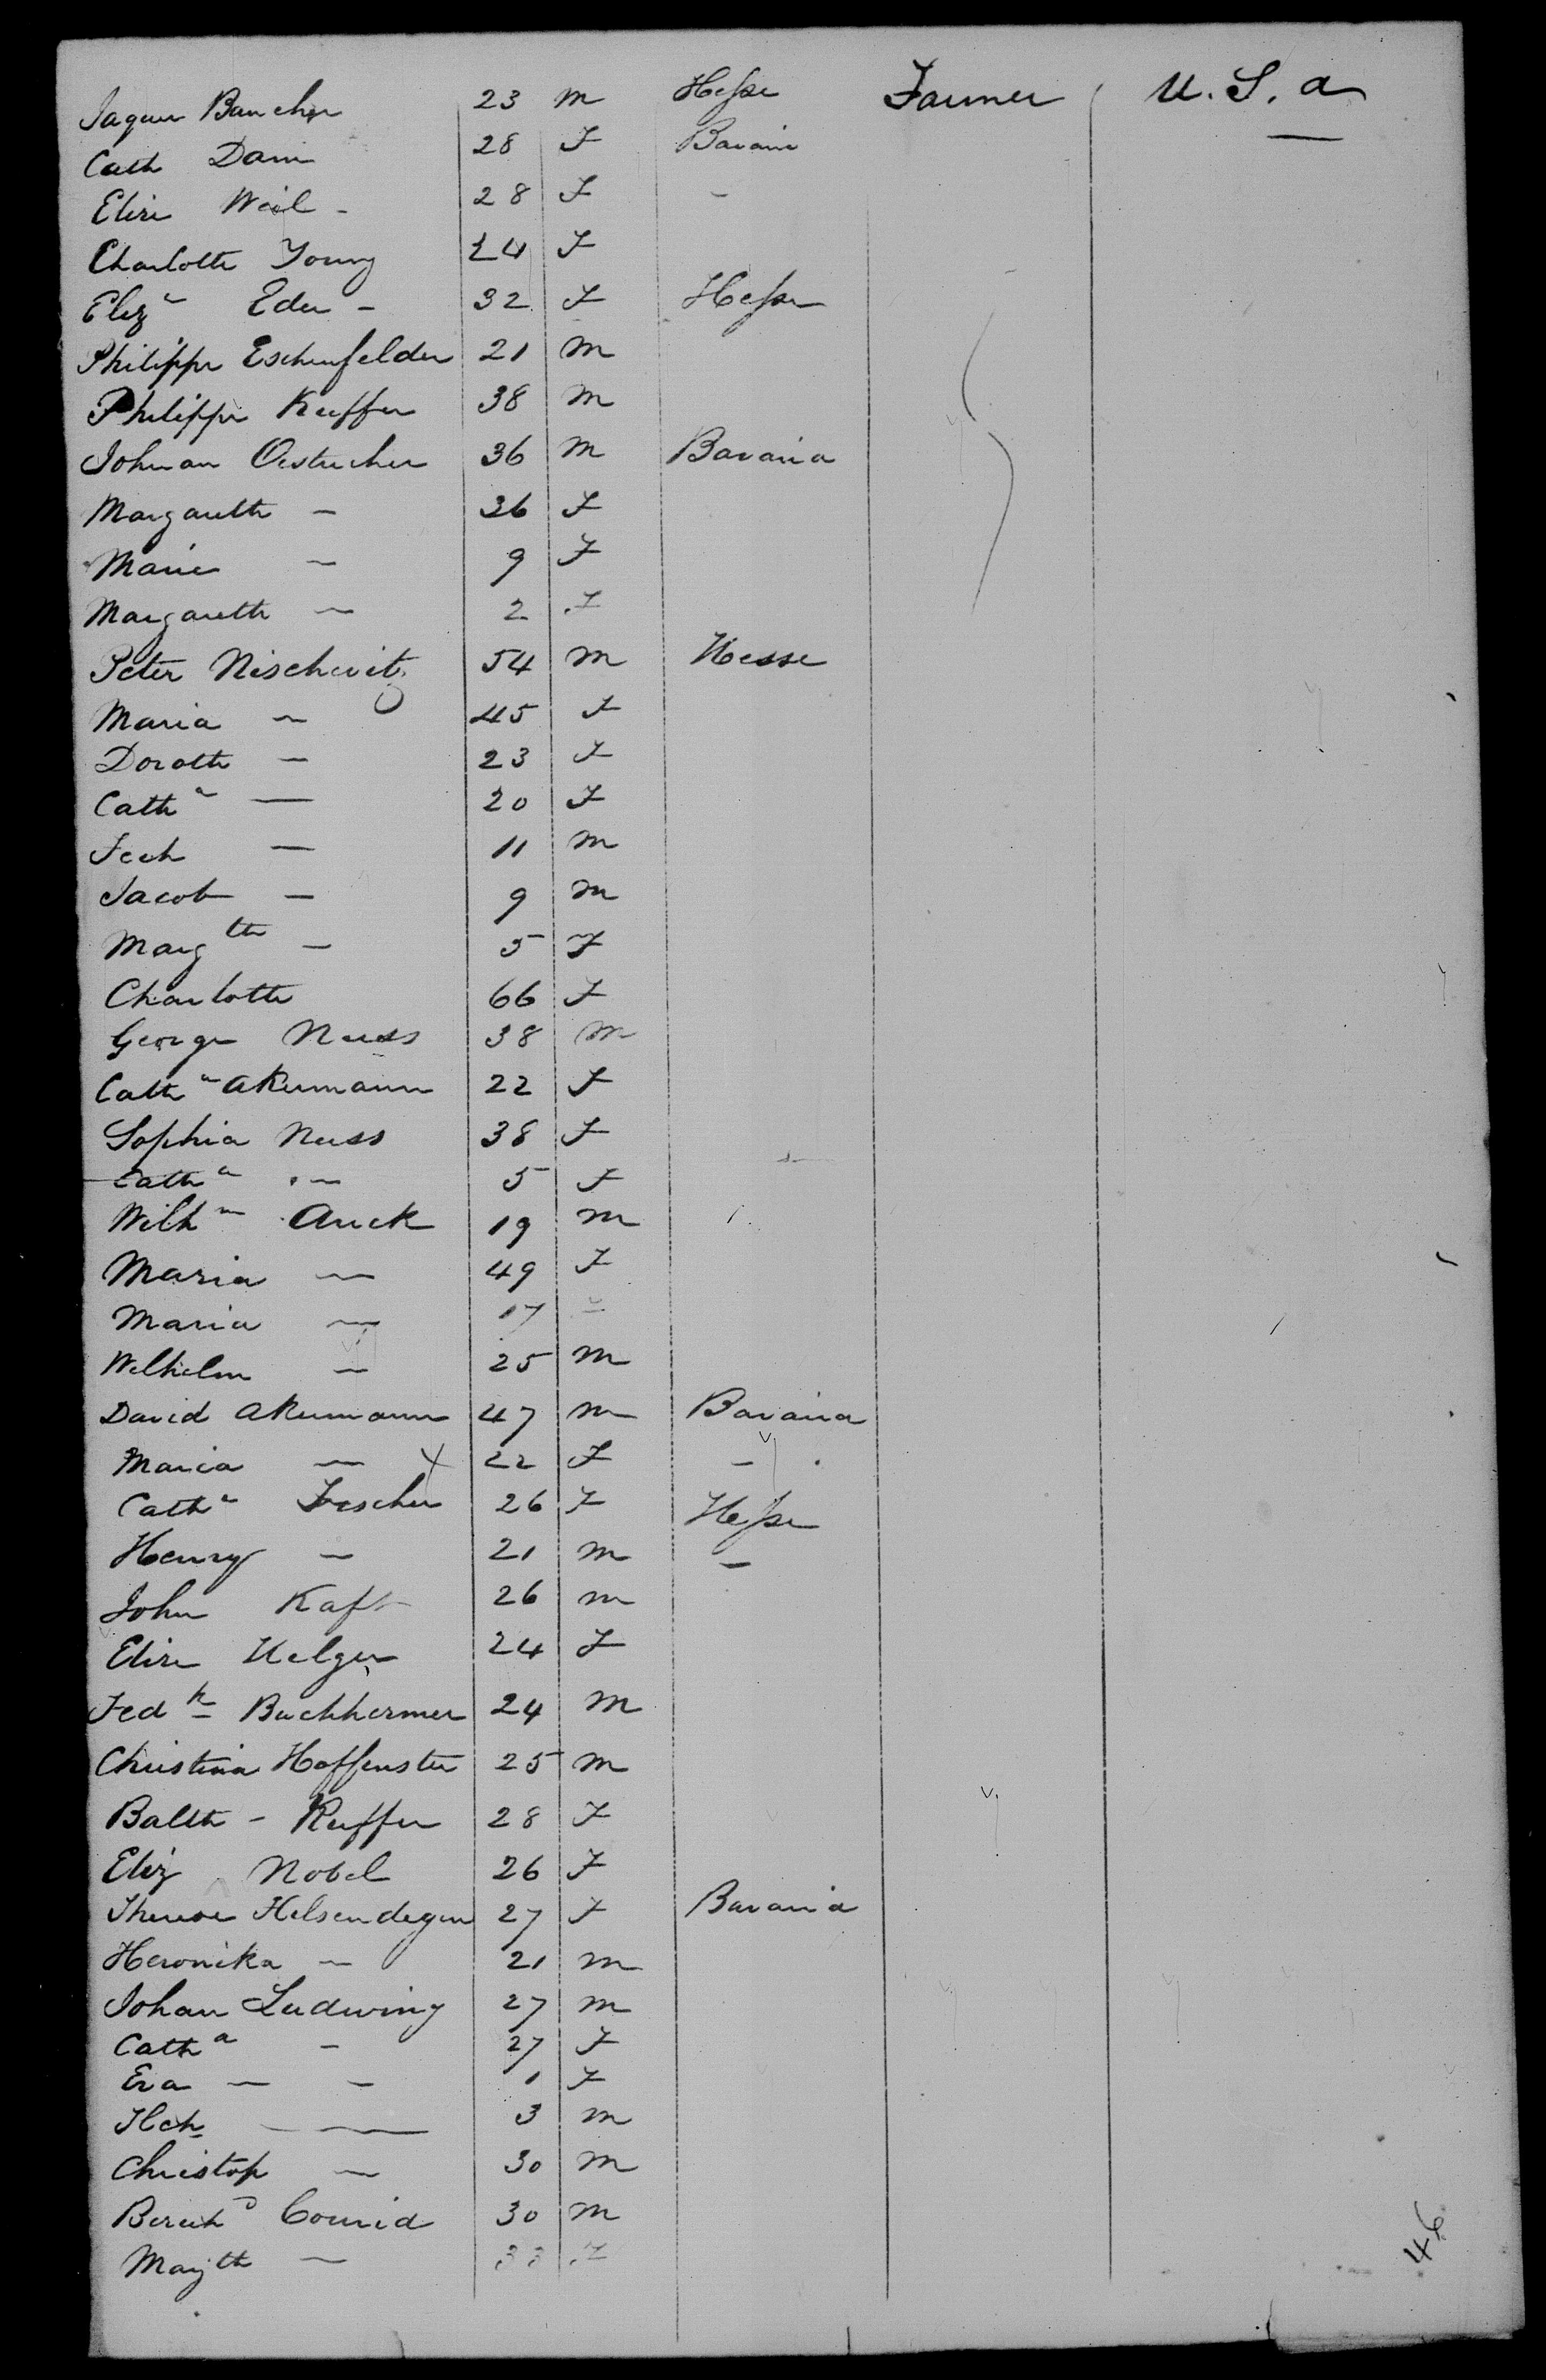 Jaques Baucher 23 m Hesse Farmer U. S. a
Cath Dam 28 F Bavaria —
Elise Weil - 28 F -
Charlotte Young 24 F
Eliza Eder - 32 F Hesse
Philippe Eschenfelder 21 m
Philippe Kuffer 38 m
Johnan Oestricher 36 m Bavaria
Margareth — 36 F
Marie — 9 F
Margareth — 2 F
Peter Nischwitz 54 m Hesse
Maria — 45 F
Doroth — 23 F
Catha — 20 F
Fech — 11 m
Jacob — 9 m
Margth — 5 F
Charlotte 66 F
George Nuss 38 m
Catha Akermann 22 F
Sophia Nuss 38 F
Catha — 5 F
Wilhm Auck 19 m
Maria — 49 F
Maria — 17 —
Wilhelm — 25 m
David Akermann 47 m Bavaria
Maria — x 22 F —
Catha Fischer 26 F Hesse
Henry — 21 m —
John Kaft 26 m
Elise Helger 24 F
Fedk Buchhermer 24 m
Christina Hoffenster 25 m
Balth - Kuffer 28 F
Eliz Nobel 26 F
Therese Helsendegen 27 F Bavaria
Heronika — 21 m
Johan Ludwing 27 m
Catha - 27 F
Eva — — 1 F
3 m
Christop — 30 m
Conrid 30 m
Magth — 33 F
46